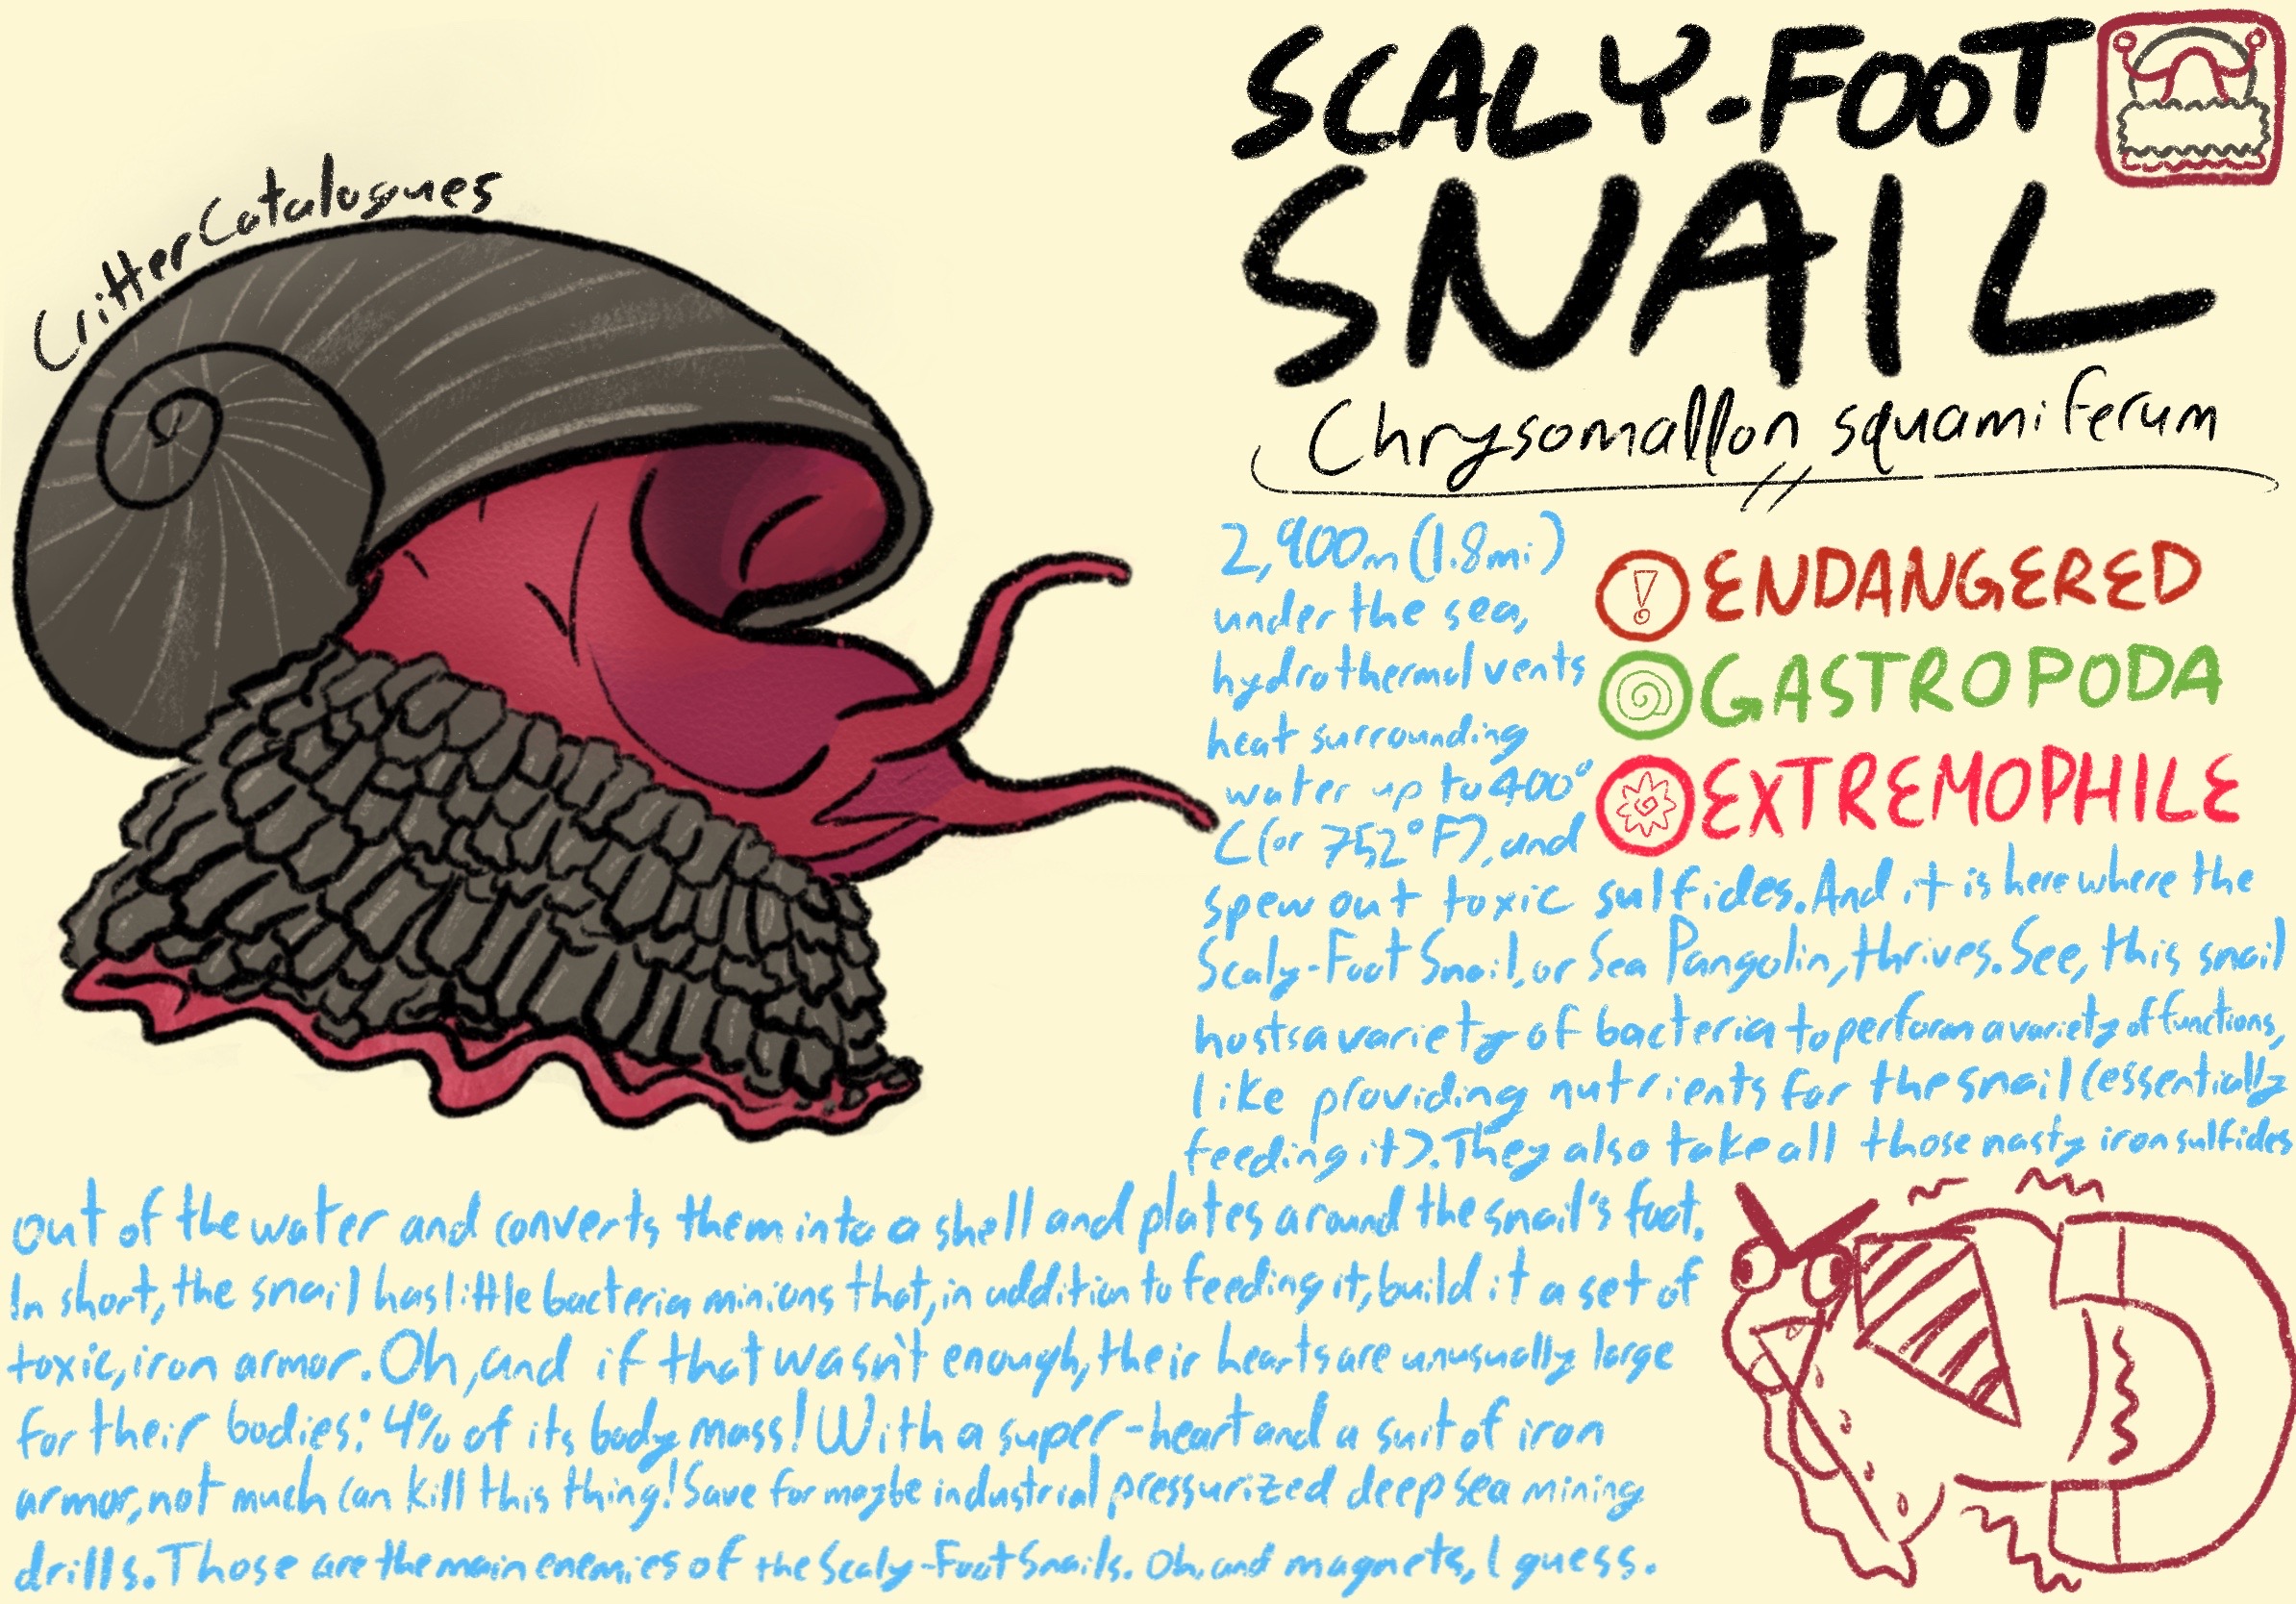 CritterCatalogues
SCALY-FOOT
SNAIL
Chrysomallon squamiferum
2,900m (1.8mi)
under the sea,
hydrothermal vents
heat surrounding
water up to 400°
C (or 752°F), and
ENDANGERED
GASTROPODA
EXTREMOPHILE
spew out toxic sulfides. And it is here where the
Scaly-Foot Snail, or Sea Pangolin, thrives. See, this snail
hosts a variety of bacteria to perform a variety of functions,
like providing nutrients for the snail (essentially
feeding it). They also take all those nasty iron sulfides
out of the water and converts them into a shell and plates around the snail's foot.
In short, the snail has little bacteria minions that, in addition to feeding it, build it a set of
toxic, iron armor. Oh, and if that wasn't enough, their hearts are unusually large
for their bodies: 4% of its body mass! With a super-heart and a suit of iron
armor, not much can kill this thing! Save for maybe industrial pressurized deep sea mining
drills. Those are the main enemies of the Scaly-Foot Snails. Oh, and magnets, I guess.